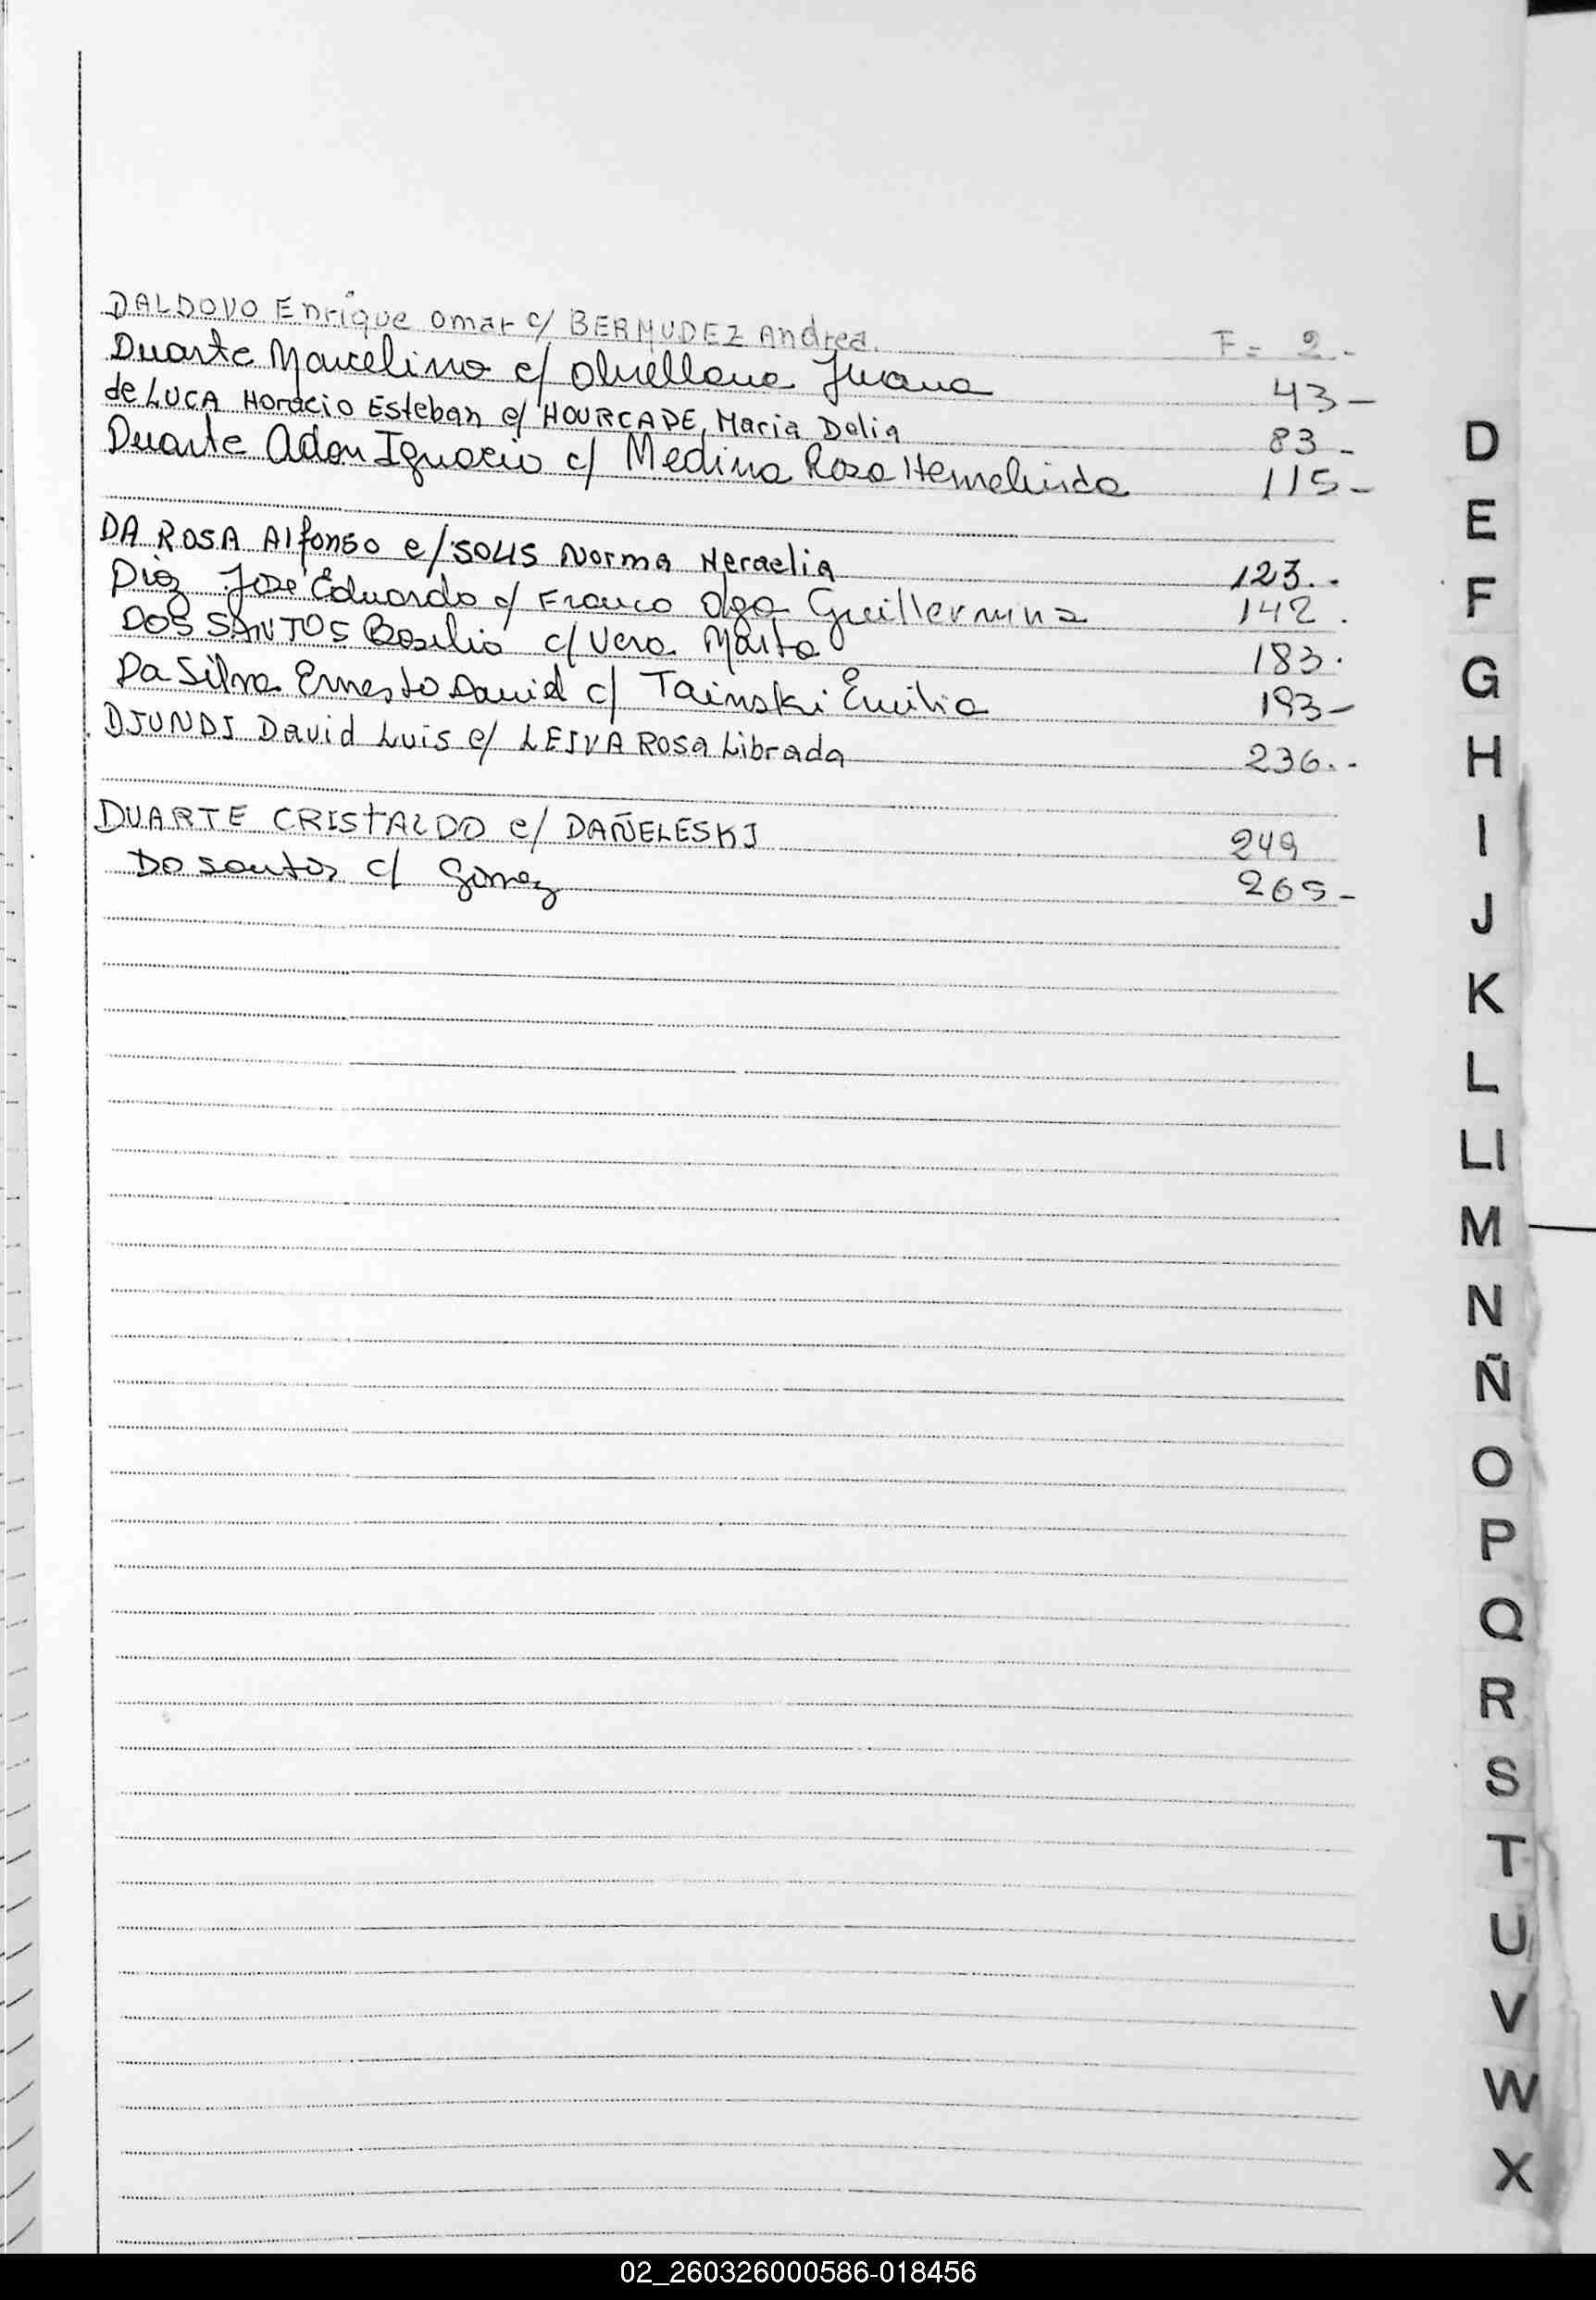 DALDOVO Enrique Omar c/ BERMUDEZ Andrea. F= 2.-
Duarte Marcelino c/ Orellana Juana 43-
de LUCA Horacio Esteban c/ HOURCADE, Maria Delia 83-
Duarte Adon Ignacio c/ Medina Rosa Hemelinda 115-
DA ROSA Alfonso c/ SOLIS Norma Heraelia 123.-
Diez José Eduardo c/ Franco Olga Guillermina 142.
DOS SANTOS Basilio c/ Vera Marta 183.
Da Silva Ernesto David c/ Tainski Emilia 193-
DJUNDI David Luis c/ LEIVA Rosa Librada 236.-
DUARTE CRISTALDO c/ DAÑELESKI 249
Do santos c/ Gomez 265-
D
E
F
G
H
I
J
K
L
Ll
M
N
Ñ
O
P
Q
R
S
T
U
V
W
X
02_260326000586-018456